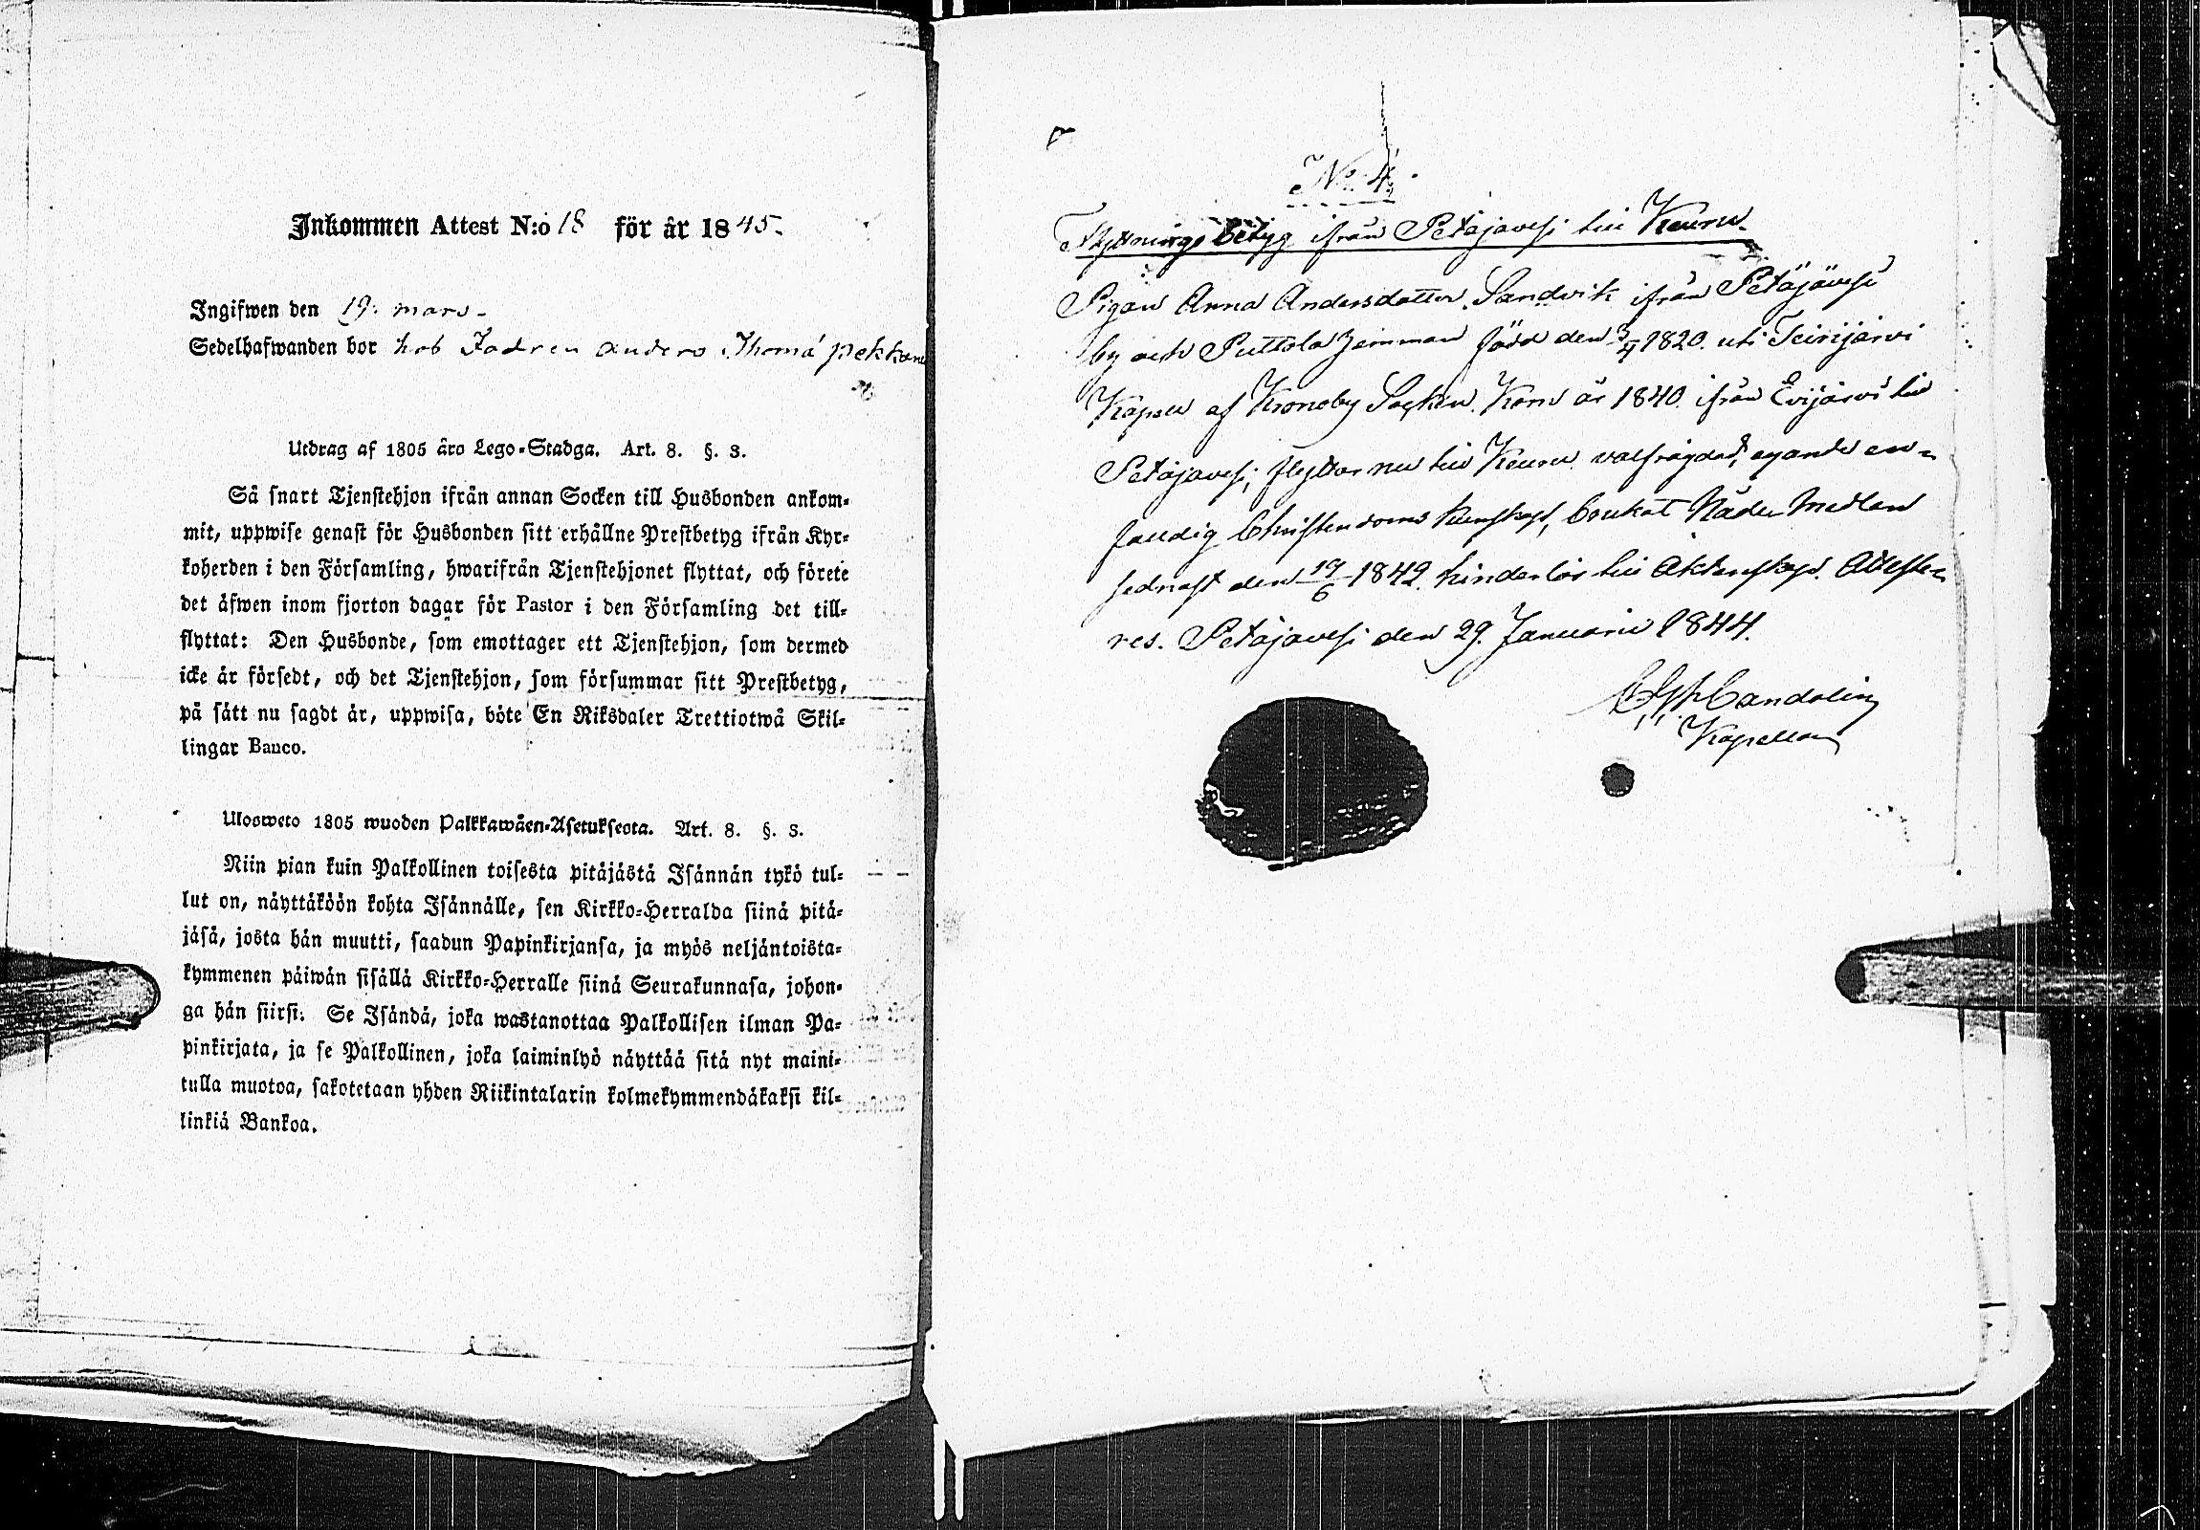 Inkommen Attest N:o 18 för år 1845.
Ingifwen den 19. mars.
Sedelhafwanden bor hos Fadren Anders Thomá Pekkane
Utdrag af 1805 års Lego-Stadga. Art. 8. §. 3.
Så snart Tjenstehjon ifrån annan Socken till Husbonden ankom-
mit, uppwise genast för Husbonden sitt erhållne Prestbetyg ifrån Kyr-
koherden i den Församling, hwarifrån Tjenstehjonet flyttat, och förete
det äfwen inom fjorton dagar för Pastor i den Församling det till-
flyttat: Den Husbonde, som emottager ett Tjenstehjon, som dermed
icke är försedt, och det Tjenstehjon, som försummar sitt Prestbetyg,
på sätt nu sagdt är, uppwisa, böte En Riksdaler Trettiotwå Skil-
lingar Banco.
Ulosweto 1805 wuoden Palkkawäen-Asetuksesta. Art. 8. §. 3.
Niin pian kuin Palkollinen toisesta pitäjästä Isännän tykö tul-
lut on, näyttäköön kohta Isännälle, sen Kirkko-Herralda siinä pitä-
jäsä, josta hän muutti, saadun Papinkirjansa, ja myös neljäntoista-
kymmenen päiwän sisällä Kirkko-Herralle siinä Seurakunnasa, johon-
ga hän siirsi: Se Isändä, joka wastanottaa Palkollisen ilman Pa-
pinkirjata, ja se Palkollinen, joka laiminlyö näyttää sitä nyt maini-
tulla muotoa, sakotetaan yhden Riikintalarin kolmekymmendäkaksi kil-
linkiä Bankoa.
No 4.
Flyttningsbetyg ifrån Petäjävesi till Keuru.
Pigan Anna Andersdotter Sandvik ifrån Petäjävesi
by och Puttola hemman född den 3/4 1820. uti Teirijärvi
Kapell af Kronoby Socken. Kom år 1840. ifrån Evijärvi till
Petäjävesi, flyttar nu till Keuru valfrägdad, egande en-
faldig Christendoms kunskap, brukat Nåde Medlen
sednast den 19/6 1842. hinderlös till Äktenskap. Atteste-
res. Petäjävesi den 29. Januarii 1844.
Candolin
Kapellan